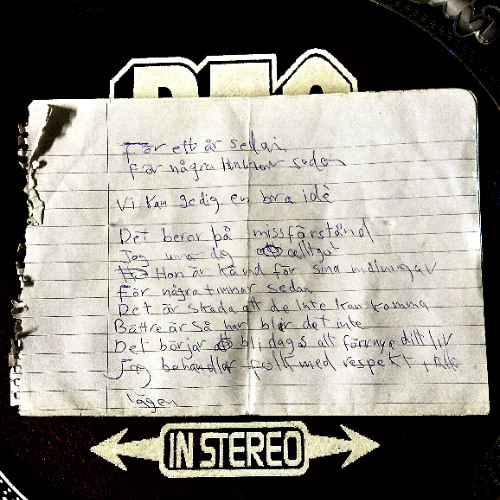 För ett år sedan
För några timmar sedan
Vi kan ge dig en bra idè
Det beror på missförstånd
Jag unna dig allt gut
Hon är känd för sina målningar
För några timmar sedan
Det är skada att de inte kan komma
Bättre är så här blir det inte
Det börjar bli dags att förnya ditt liv
Jag behandlar folk med respekt i alla
lägen
IN STEREO